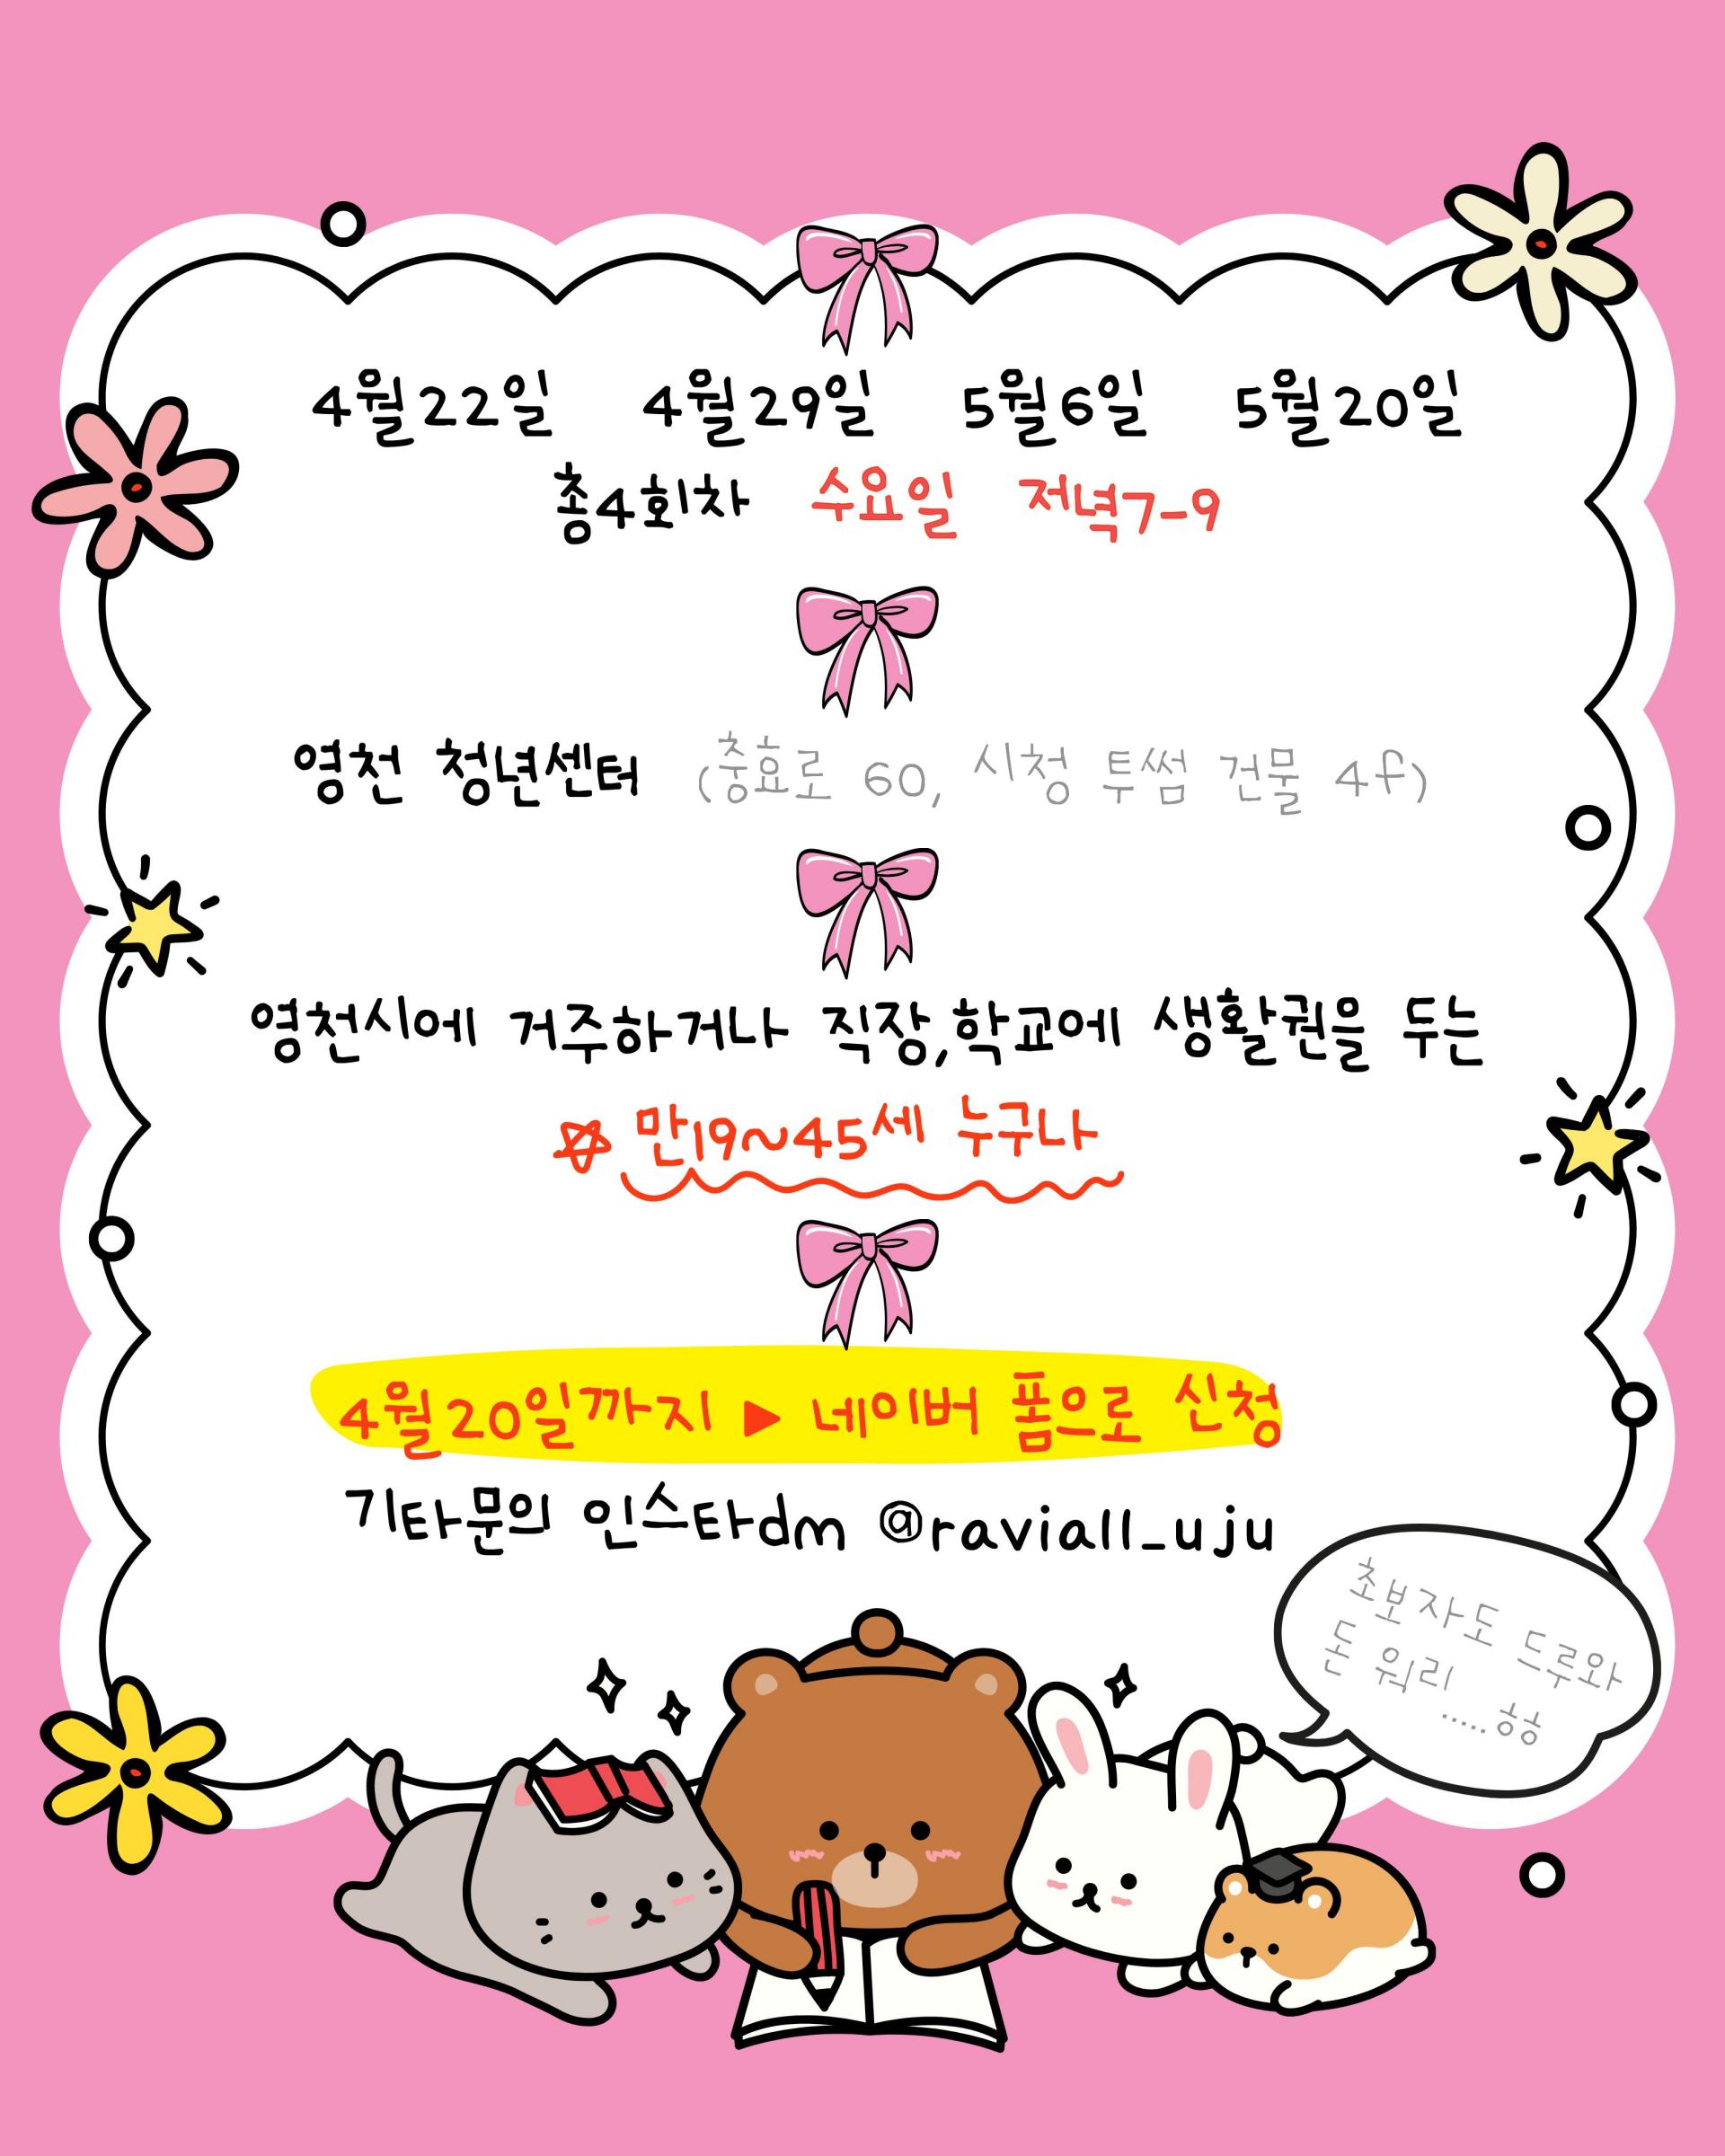 4월22일 4월29일 5월6일 5월20일
총4회차 수요일 저녁7-9
영천 청년센터 (충효로 60, 시청 투썸 건물 4f)
영천시에 거주하거나 직장,학교에 생활권을 두는
만19~45세 누구나
4월20일까지 ▶ 네이버 폼으로 신청
기타문의 인스타dm @raviall_uju
초보자도 드루와
눈 워리
.....흐흐